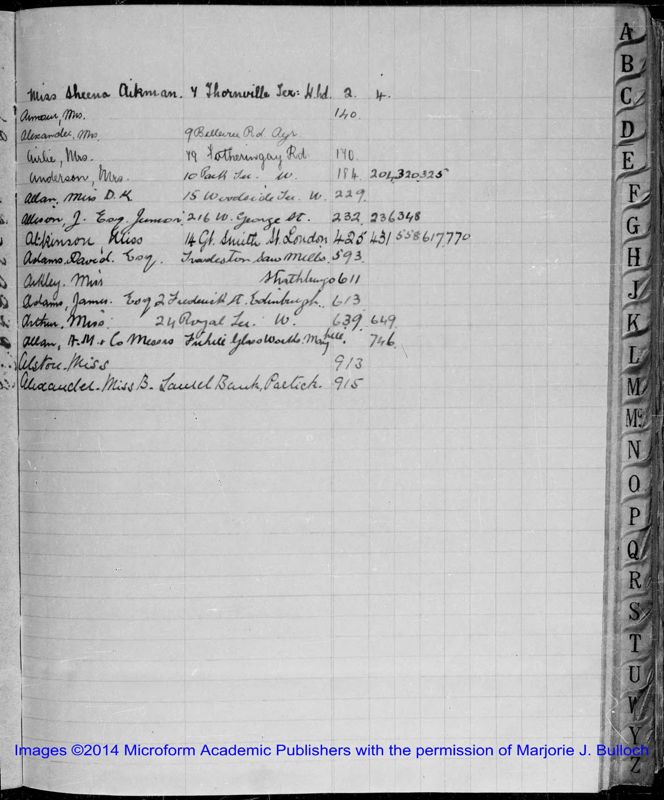 Miss Sheena Aikman. 4 Thornville Ter: Hhd. 2. 4.
Armour, Mrs. 140.
Alexander, Mrs 9 Bellevue Rd Ayr
Airlie, Mrs. 49 Fotheringay Rd 140.
Anderson, Mrs. 10 Park Ter. W. 184. 204, 320, 325
Allan, Miss D. K. 15 Woodside Ter. W. 229.
Allison, J. Esq. Junior 216 W. George St. 232, 236 348
Atkinson, Miss 14 Gt. Smith St. London 425 431 558 617, 770
Adams, David. Esq. Tradeston Saw Mills. 593.
Arkley, Miss Strathbungo 611
Adams, James. Esq 2 Frederick St. Edinburgh. 613
Arthur, Miss. 24 Royal Ter. W. 639, 649
Allan, A. M. & Co Messrs Glass Works Mary hill. 746.
Alston. Miss 913
Alexander. Miss B. Laurel Bank, Partick. 915
A
B
C
D
E
F
G
H
J
K
L
M
Mc
N
O
P
Q
R
S
T
U
W
Y
Z
Images ©2014 Microform Academic Publishers with the permission of Marjorie J. Bulloch